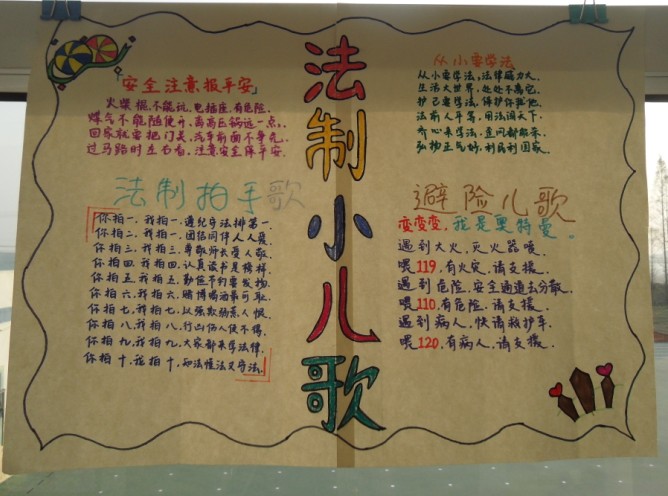 法制小儿歌
「安全注意报平安」
火柴棍,不能玩,电插座,有危险.
煤气不能随便开,离高压锅远一点.
回家就要把门关,汽车前面不争先.
过马路时左右看,注意安全保平安.
法制拍手歌
你拍一,我拍一,遵纪守法排第一.
你拍二,我拍二,团结同伴人人爱.
你拍三,我拍三,尊敬师长受人敬.
你拍四,我拍四,认真读书是榜样.
你拍五,我拍五,勤俭节约要发扬.
你拍六,我拍六,赌博喝酒最可耻.
你拍七,我拍七,以强欺弱惹人恨.
你拍八,我拍八,行凶伤人使不得.
你拍九,我拍九,大家都来学法律.
你拍十,我拍十,知法懂法又守法.
从小要学法
从小要学法,法律威力大.
生活大世界,处处不离它.
护己要学法,保护你我他.
法前人平等,用法闯天下.
齐心来学法,
弘扬正气,利民利国家.
避险儿歌
变变变,我是奥特曼。
遇到大火,灭火器喷.
喂119,有火灾,请支援.
遇到危险,安全通道去分散.
喂110,有危险,请支援.
遇到病人,快请救护车.
喂120,有病人,请支援.